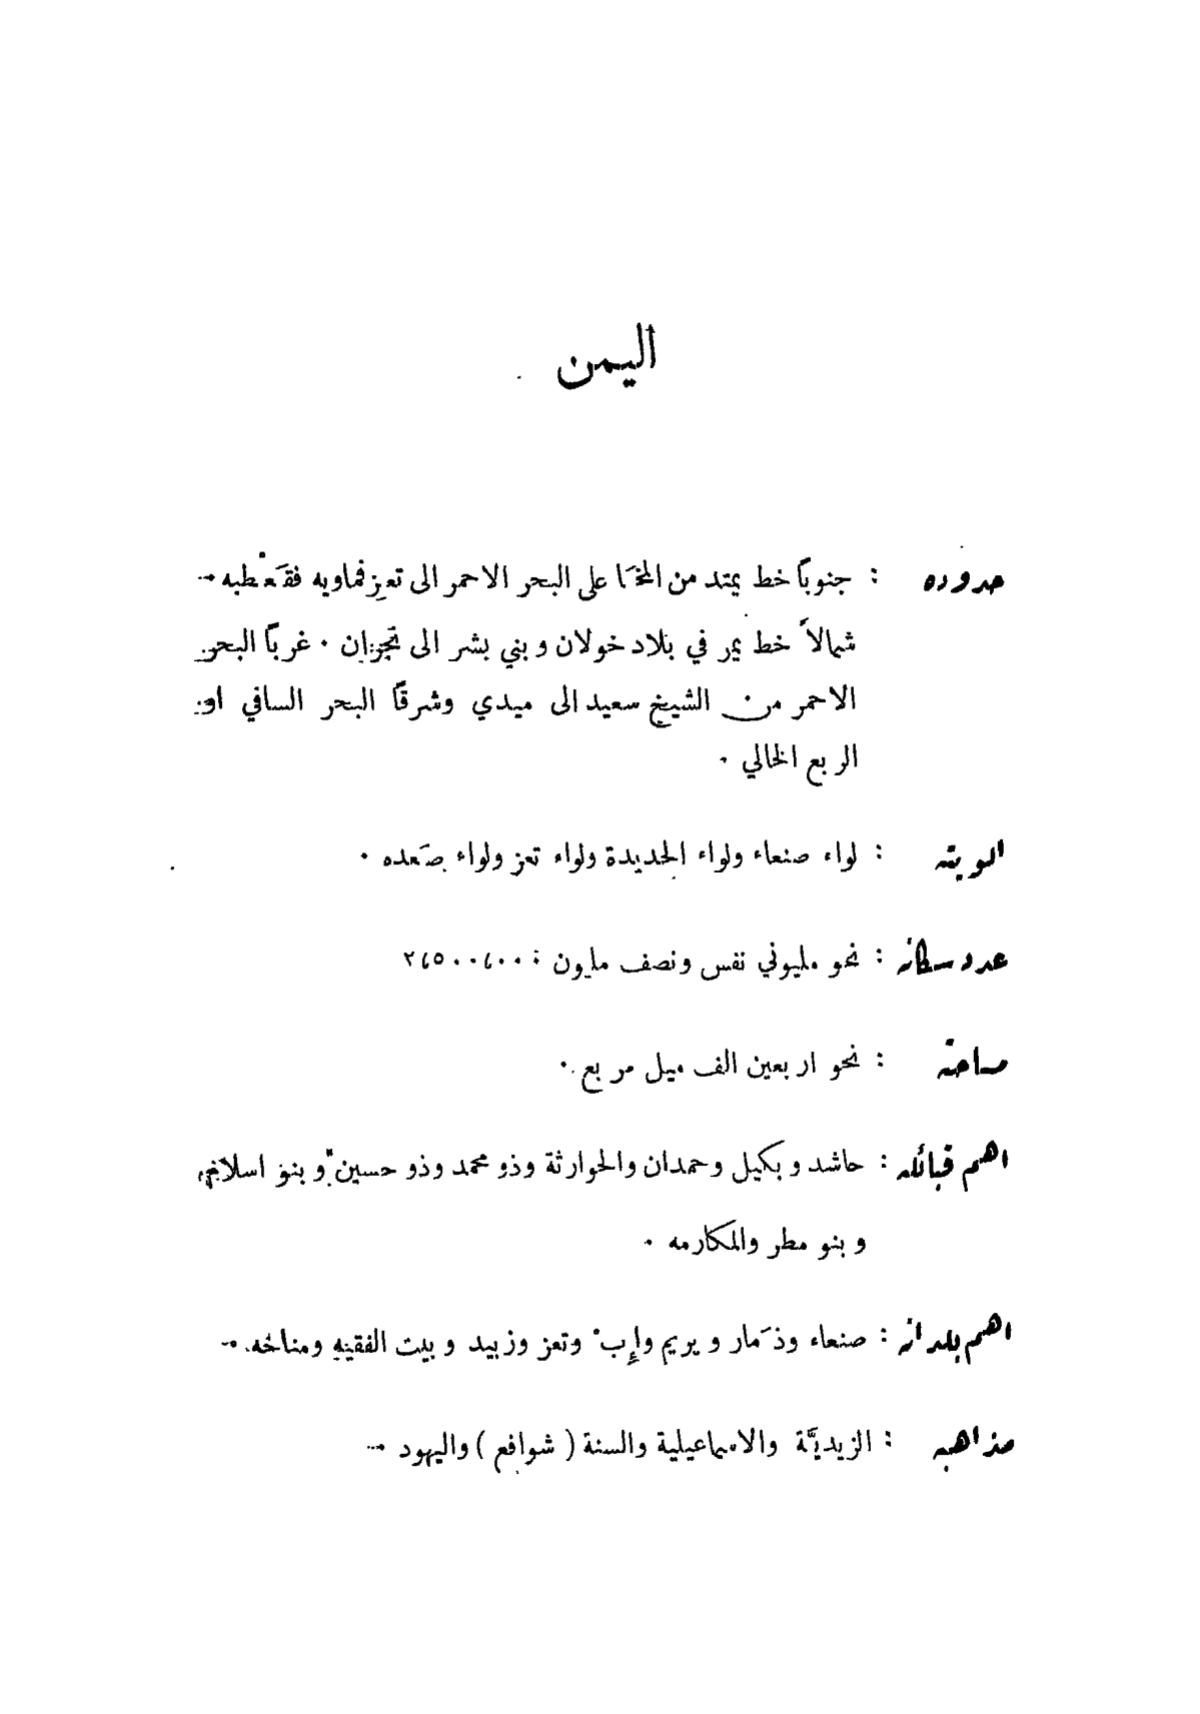 اليمن
حدوده : جنوبًا خط يمتد من المخَا على البحر الاحمر الى تعز فماويه فقَعْطبه ·
شمالاً خط يمر في بلاد خولان وبني بشر الى نجران · غربًا البحر
الاحمر من الشيخ سعيد الى ميدي وشرقًا البحر السافي او
الربع الخالي ·
الويته : لواء صنعاء ولواء الحديدة ولواء تعز ولواء صَعده ·
عدد سكانه : نحو مليوني نفس ونصف مليون : ٢،٥٠٠،٠٠٠
مساحته : نحو اربعين الف ميل مربع ·
اهم قبائله : حاشد وبكيل وحمدان والحوارثة وذو محمد وذو حسين وبنو
وبنو مطر والمكارمه ·
اهم بلدانه : صنعاء وذَمار ويريم وإِبْ وتعز وزبيد وبيت الفقيه ومناخه ·
مذاهبه : الزيديَّة والاسماعيلية والسنة ( شوافع ) واليهود ·